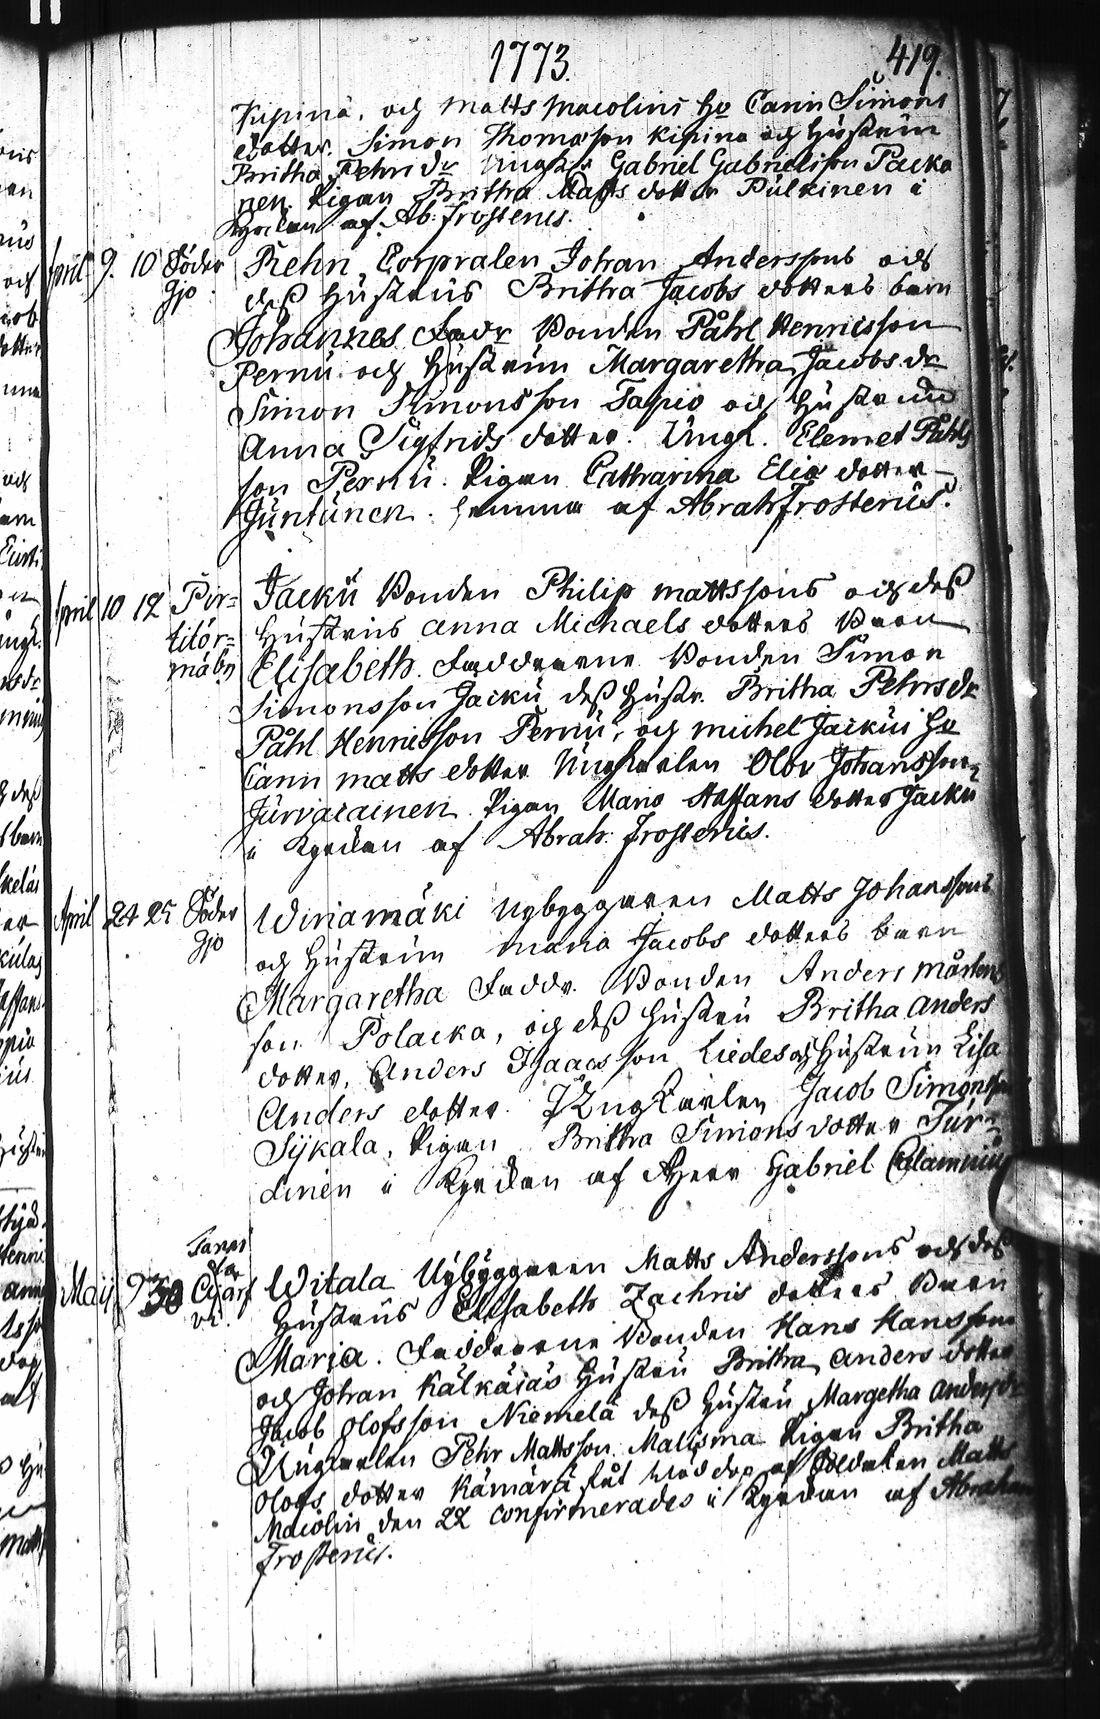 1773. 419.
Kipina, och Matts Macolins H:o Carin Simons
dotter. Simon Thomasson Kipina och Hustrun
Britha Pehrs dr Gabriel Gabrielsson Packa
nen. Pigan Britha Matts dotter Pulkinen i
Kyrckan af Ab: Frosterus.
April 9. 10 Söder Rehn, Corpralen Johan Anderssons och
Gjo deß Hustrus Britha Jacobs dotters barn
Johannes Faddr Bonden Påhl Henricsson
Pernu och Hustrun Margaretha Jacobs dr
Simon Simonsson Tapio och Hustrun
Anna Sigfrids dotter. Ungk. Clemet Påhls
son Pernu. Pigan Catharina Elias dotter
Juntunen. hemma af Abrah Frosterus.
April 10 12 Pir= Jacku Bonden Philip Mattssons och deß
titör= Hustrus Anna Michaels dotters Barn
mäbn Elisabeth. Faddrarne Bonden Simon
Simonsson Jacku deß Hustr. Britha Pehrs dr
Påhl Henricsson Pernu, och Michel Jackus H:o
Carin Matts dotter Ungkarlen Olov Johansson
Jurvacainen. Pigan Maria Staffans dotter Jacku
i Kyrckan af Abrah: Frosterus.
April 24 25 Söder Wiriamäki Nybyggaren Matts Johanssons
Gjo och Hustrun Maria Jacobs dotters barn
Margaretha Faddr. Bonden Anders Mårtens
son Polacka, och deß Hustru Britha Anders
dotter, Anders Isaacsson Liedes och Hustrun Lisa
Anders dotter. Ungkarlen Jacob Simonsson
Sykala, Pigan Britha Simons dotter Tur=
dinen i Kyrckan af Herr Gabriel Calamnius
Maij 9 30 Witala Nybyggaren Matts Anderssons och deß
Hustrus Elisabeth Zachris dotters Barn
Maria. Faddrarne Bonden Hans Hansson
och Johan Kälkäjäs Hustru Britha Anders dotter
Jacob Olofsson Niemelä deß Hustru Margetha Anders dr
Ungkarlen Pehr Mattsson Malisma Pigan Britha
Olofs dotter Kämärä fåt Nöddop af Soldaten Matts
Macolin den 22 confirmerades i Kyrckan af Abraham
Frosterus.